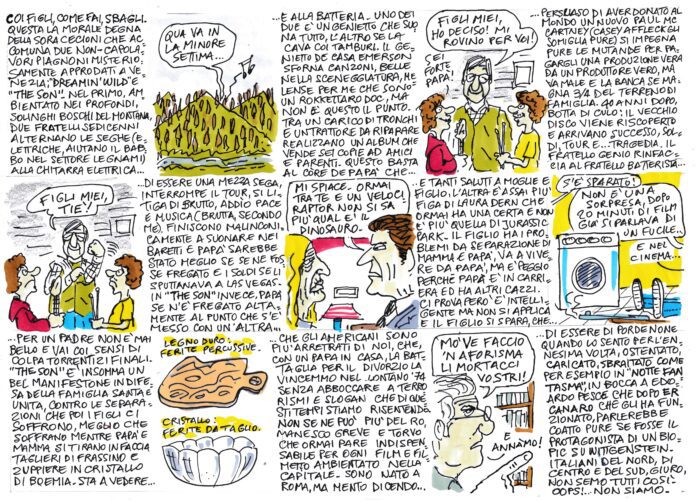 COI FIGLI, COME FAI, SBAGLI.
QUESTA LA MORALE DEGNA
DELLA SORA CECIONI CHE AC
COMUNA DUE NON-CAPOLA-
VORI PIAGNONI MISTERIO,
SAMENTE APPRODATI A VE-
NEZIA, "DREAMIN' WILD" E
"THE SON". NEL PRIMO, AM,
BIENTATO NEI PROFONDI,
SOLINGHI BOSCHI DEL MONTANA,
DUE FRATELLI SEDICENNI
ALTERNANO LE SEGHE (E,
LETTRICHE, AIUTANO IL BAB,
BO NEL SETTORE LEGNAMI)
ALLA CHITARRA ELETTRICA...
QUA VA IN
LA MINORE
SETTIMA...
...E ALLA BATTERIA. UNO DEI
DUE E' UN GENIETTO CHE SUO
NA TUTTO, L'ALTRO SE LA
CAVA COI TAMBURI. IL GE-
NIETTO DE CASA EMERSON
SFORNA CANZONI, BELLE
NELLA SCENEGGIATURA, ME
LENSE PER ME CHE SONO
UN ROKKETTARO DOC, MA
NON E' QUESTO IL PUNTO.
TRA UN CARICO DI TRONCHI
E UN TRATTORE DA RIPARARE
REALIZZANO UN ALBUM CHE
VENDE SEI COPIE AD AMICI
E PARENTI. QUESTO BASTA
AL CÒRE DE PAPA' CHE...
FIGLI MIEI,
HO DECISO! MI
ROVINO PER VOI!
SEI
FORTE
PAPA'!
PERSUASO DI AVER DONATO AL
MONDO UN NUOVO PAUL MC
CARTNEY (CASEY AFFLECK GLI
SOMIGLIA PURE) SI IMPEGNA
PURE LE MUTANDE PER PA-
GARGLI UNA PRODUZIONE VERA
DA UN PRODUTTORE VERO, MA
VA MALE E LA BANCA SE MA-
GNA 3/4 DEL TERRENO DI
FAMIGLIA. 40 ANNI DOPO,
BOTTA DI CULO: IL VECCHIO
DISCO VIENE RISCOPERTO
E ARRIVANO SUCCESSO, SOL,
DI, TOUR E... TRAGEDIA. IL
FRATELLO GENIO RINFAC=
CIA AL FRATELLO BATTERISTA...
FIGLI MIEI,
TIE'!
...DI ESSERE UNA MEZZA SEGA,
INTERROMPE IL TOUR, SI LI,
TIGA DI BRUTTO, ADDIO PACE
E MUSICA (BRUTTA, SECONDO
ME). FINISCONO MALINCONI,
CAMENTE A SUONARE NEI
BARETTI E PAPA' SAREBBE
STATO MEGLIO SE SE NE FOS
SE FREGATO E I SOLDI SE LI
SPUTTANAVA A LAS VEGAS.
IN "THE SON" INVECE, PAPA'
SE N'E' FREGATO ALTA,
MENTE AL PUNTO CHE S'E'
MESSO CON UN'ALTRA...
MI SPIACE. ORMAI
TRA TE E UN VELOCI
RAPTOR NON SI SA
PIU' QUAL E' IL
DINOSAURO.
...E TANTI SALUTI A MOGLIE E
FIGLIO. L'ALTRA E' ASSAI PIU'
FIGA DI LAURA DERN CHE
ORMAI HA UNA CERTA E NON
E' PIU' QUELLA DI "JURASSIC
PARK". IL FIGLIO HA I PRO,
BLEMI DA SEPARAZIONE DI
MAMMA E PAPA', VA A VIVE,
RE DA PAPA', MA E' PEGGIO
PERCHE' PAPA' E' IN CARRI,
ERA ED HA ALTRI CAZZI.
CI PROVA PERO', E' INTELLI,
GENTE MA NON SI APPLICA
E IL FIGLIO SI SPARA, CHE...
S'E' SPARATO!
NON E' UNA
SORPRESA, DOPO
20 MINUTI DI FILM
GIA' SI PARLAVA DI
UN FUCILE...
E NEL
CINEMA...
...PER UN PADRE NON E' MAI
BELLO E VAI COI SENSI DI
COLPA TORRENTIZI FINALI.
"THE SON" E' INSOMMA UN
BEL MANIFESTONE IN DIFE,
SA DELLA FAMIGLIA SANTA E
UNITA, CONTRO LE SEPARA,
ZIONI CHE POI I FIGLI CI
SOFFRONO, MEGLIO CHE
SOFFRANO MENTRE PAPA' E
MAMMA SI TIRANO IN FACCIA
TAGLIERI DI FRASSINO E
ZUPPIERE IN CRISTALLO
DI BOEMIA. STA A VEDERE...
LEGNO DURO:
FERITE PERCUSSIVE.
CRISTALLO:
FERITE DA TAGLIO.
...CHE GLI AMERICANI SONO
PIU' ARRETRATI DI NOI, CHE,
CON UN PAPA IN CASA, LA BAT-
TAGLIA PER IL DIVORZIO LA
VINCEMMO NEL LONTANO '74
SENZA ABBOCCARE A TERRO
RISMI E SLOGAN CHE DI QUE
STI TEMPI STIAMO RISENTENDO.
NON SE NE PUO' PIU' DEL RO,
MANESCO GREVE E TORVO
CHE ORMAI PARE INDISPEN,
SABILE PER OGNI FILM E FIL
METTO AMBIENTATO NELLA
CAPITALE. SONO NATO A
ROMA, MA MENTO DICENDO...
MO' VE FACCIO
'N AFORISMA
LI MORTACCI
VOSTRI!
E
ANNAMO!
...DI ESSERE DI PORDENONE
QUANDO LO SENTO PER L'EN,
NESIMA VOLTA, OSTENTATO,
CARICATO, SBRAITATO COME
PER ESEMPIO IN "NOTTE FAN
TASMA", IN BOCCA A EDO,
ARDO PESCE CHE DOPO ER
CANARO CHE GLI HA FUN,
ZIONATO, PARLEREBBE
COATTO PURE SE FOSSE IL
PROTAGONISTA DI UN BIO,
PIC SU WITTGENSTEIN.
ITALIANI DEL NORD, DI
CENTRO E DEL SUD, GIURO,
NON SEMO TUTTI COSI'.
OOPS!... NON SIAMO.